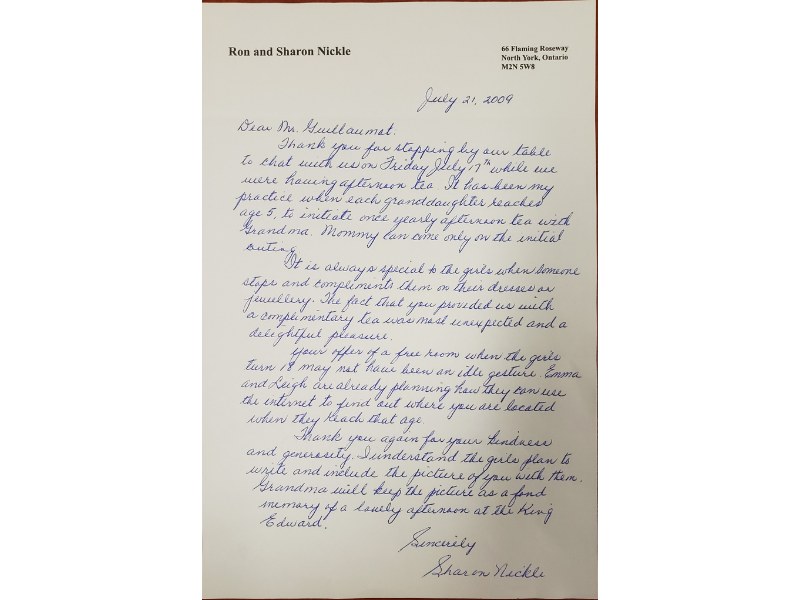 Ron and Sharon Nickle
66 Flaming Roseway
North York, Ontario
M2N 5W8
July 21, 2009
Dear Mr. Guillaumot.
Thank you for stopping by our table
to chat with us on Friday July 17th while we
were having afternoon tea. It has been my
practice when each granddaughter reaches
age 5, to initiate once yearly afternoon tea with
Grandma. Mommy can come only on the initial
outing.
It is always special to the girls when someone
stops and compliments them on their dresses or
jewellery. The fact that you provided us with
a complimentary tea was most unexpected and a
delightful pleasure.
Your offer of a free room when the girls
turn 18 may not have been an idle gesture. Emma
and Leigh are already planning how they can use
the internet to find out where you are located
when they reach that age.
Thank you again for your kindness
and generosity. I understand the girls plan to
write and include the picture of you with them.
Grandma will keep the picture as a fond
memory of a lovely afternoon at the King
Edward.
Sincerely
Sharon Nickle